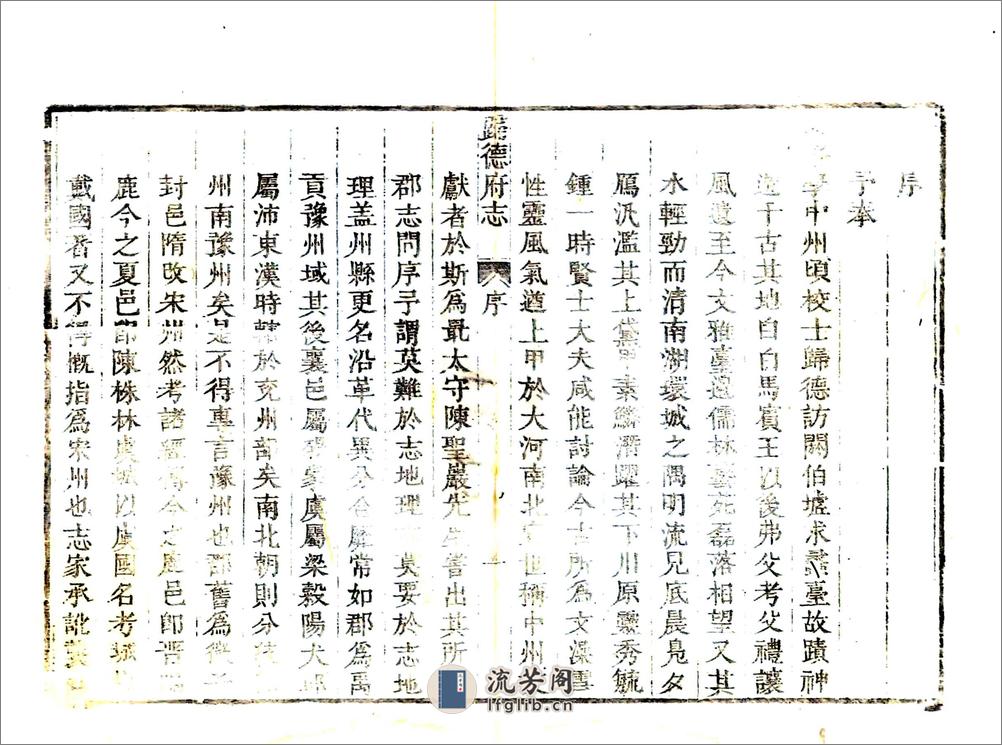 序
予奉
學中州頃校士歸德訪閼伯墟求靈臺故蹟神
遊千古其地自白馬賓王以後弗父考父禮讓
風遺至今文雅臺邊儒林藝苑磊落相望又其
水輕勁而清南湖環城之隅明流見底晨鳧夕
鴈汎濫其上黛甲素鱗潛躍其下川原靈秀毓
鍾一時賢士大夫咸能討論今古所為文澡雪
性靈風氣遒上甲於大河南北世稱中州
歸德府志 序 一
獻者於斯為最太守陳聖巖先生嘗出其所
郡志問序予謂莫難於志地理莫要於志地
理蓋州縣更名沿革代異分合靡常如郡為禹
貢豫州域其後襄邑屬虞屬梁穀陽犬邱
屬沛東漢時轄於兗州部矣南北朝則分徐
州南豫州矣是不得專言豫州也郡舊為微子
封邑隋改宋州然考諸經傳今之鹿邑即晉鳴
鹿今之夏邑即陳株林虞城以虞國名考城
戴國又不得概指為宋州也志家承訛襲
流芳阁
lfglib.cn